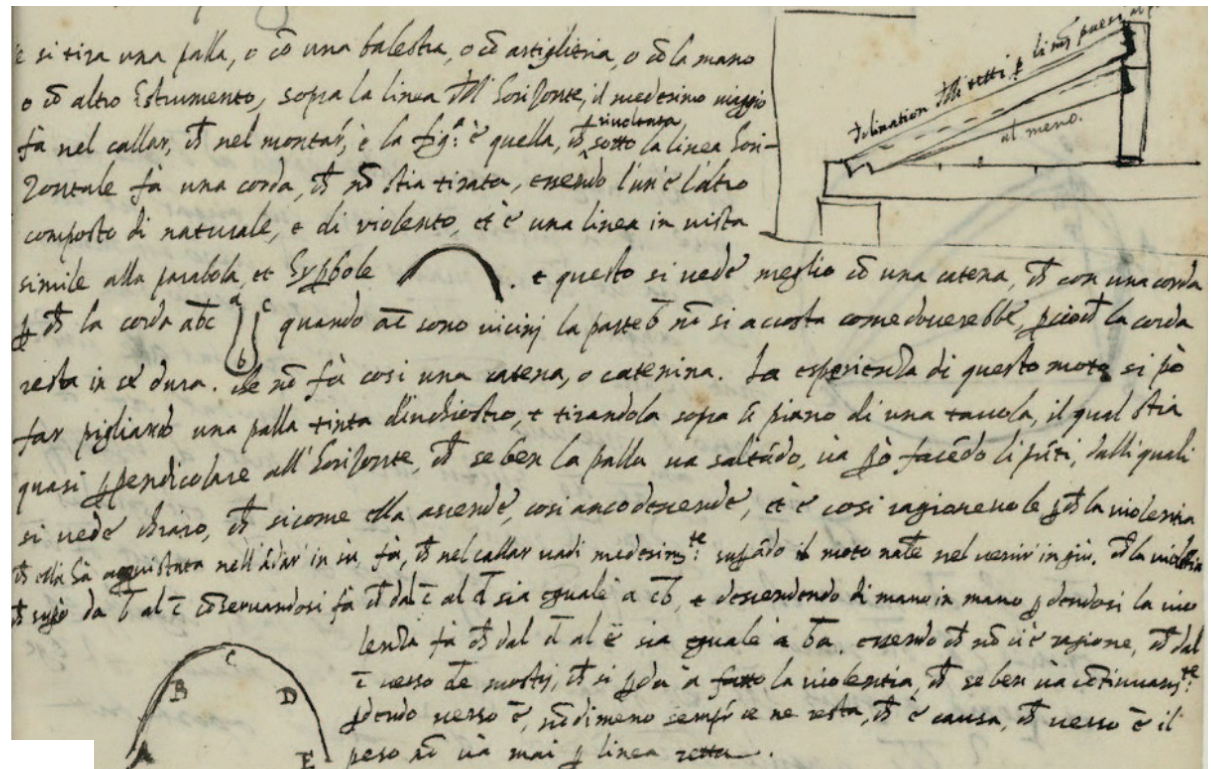 se si tira una palla, o cō una balestra, o cō artiglieria, o cō la mano
o cō altro Istrumento, sopra la linea dell'horizonte, il medesimo viaggio
fà nel callar, ch̄ nel montar, e la fig.ᵃ è quella, ch̄ rivoltata sotto la linea hori-
zontale fà una corda, ch̄ nō stia tirata, essendo l'un' e l'altro
composto di naturale, e di violento, et è una linea in vista
simile alla parabola, et hyꝑbole . e questo si vede meglio cō una catena, ch̄ con una corda
ꝑ ch̄ la corda abc quando ac sono vicinj la parte b nō si accosta come doverebbe, ꝑcioch̄ la corda
resta in se dura. che nō fà cosi una catena, o catenina. La esperienza di questo moto si pò
far pigliando una palla tinta d'inchiostro, e tirandola sopra ū piano di una tavola, il qual stia
quasi ꝑpendicolare all'horizonte, ch̄ se ben la palla va saltādo, và ꝑò facēdo li pūti, dalli quali
si vede chiaro, ch̄ sicome ella ascende, cosi anco descende, et è cosi ragionevole ꝑch̄ la violentia
ch̄ ella hà acquistata nell'ādar in sù fà, ch̄ nel callar vadi medesimᵗᵉ: suꝑādo il moto natᵉ nel venir in giù. ch̄ la violētia
ch̄ suꝑò da b al c cōservandosi fà ch̄ dal c al d sia eguale a cb, e descendendo di mano in mano ꝑdendosi la vio
lenza fà ch̄ dal d al e sia eguale à ba. essendo ch̄ nō ci è ragione, ch̄ dal
c verso de mostrj, ch̄ si ꝑda à fatto la violentia, ch̄ se ben và cōtinuamᵗᵉ:
ꝑdendo verso e, nōdimeno sempre se ne resta, ch̄ è causa, ch̄ verso e il
peso nō và mai ꝑ linea retta.
a c
b
A B C D E
Inclination delli tetti ꝑ li nr̄i paesi al
al meno.